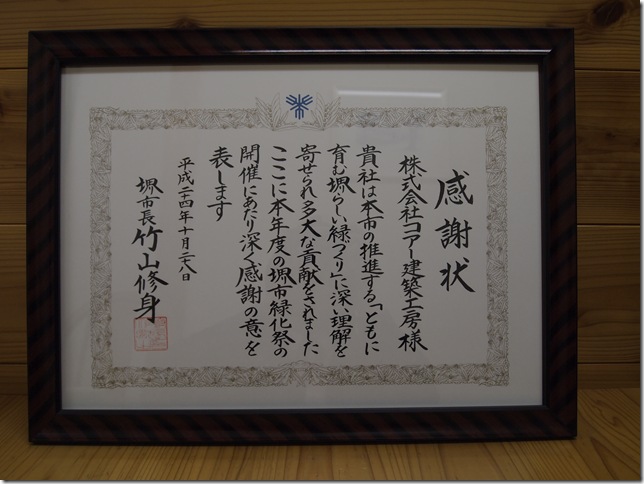 感謝状
株式会社コアー建築工房様
貴社は本市の推進する「ともに
育む堺らしい緑づくり」に深い理解を
寄せられ多大な貢献をされました
ここに本年度の堺市緑化祭の
開催にあたり深く感謝の意を
表します
平成二十四年十月二十八日
堺市長竹山修身